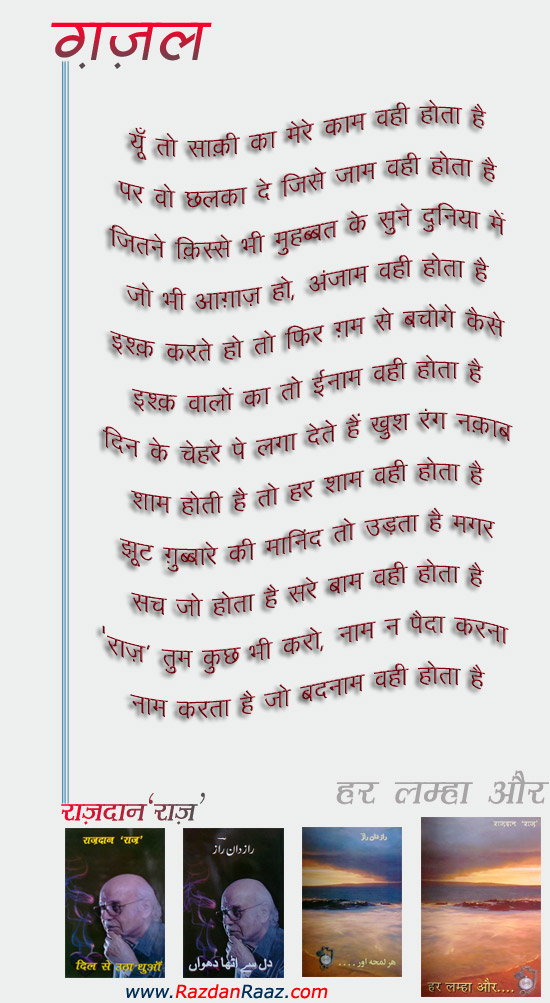 ग़ज़ल
यूँ तो साक़ी का मेरे काम वही होता है
पर वो छलका दे जिसे जाम वही होता है
जितने क़िस्से भी मुहब्बत के सुने दुनिया में
जो भी आग़ाज़ हो, अंजाम वही होता है
इश्क़ करते हो तो फिर ग़म से बचोगे कैसे
इश्क़ वालों का तो ईनाम वही होता है
दिन के चेहरे पे लगा देते हैं खुश रंग नक़ाब
शाम होती है तो हर शाम वही होता है
झूट ग़ुब्बारे की मानिंद तो उड़ता है मगर
सच जो होता है सरे बाम वही होता है
'राज़' तुम कुछ भी करो, नाम न पैदा करना
नाम करता है जो बदनाम वही होता है
हर लम्हा और
राज़दान 'राज़'
राज़दान 'राज़'
दिल से उठा धुआँ
رازدان راز
دل سے اٹھا دھواں
رازدان راز
ہر لمحہ اور....
राज़दान 'राज़'
हर लम्हा और....
www.RazdanRaaz.com